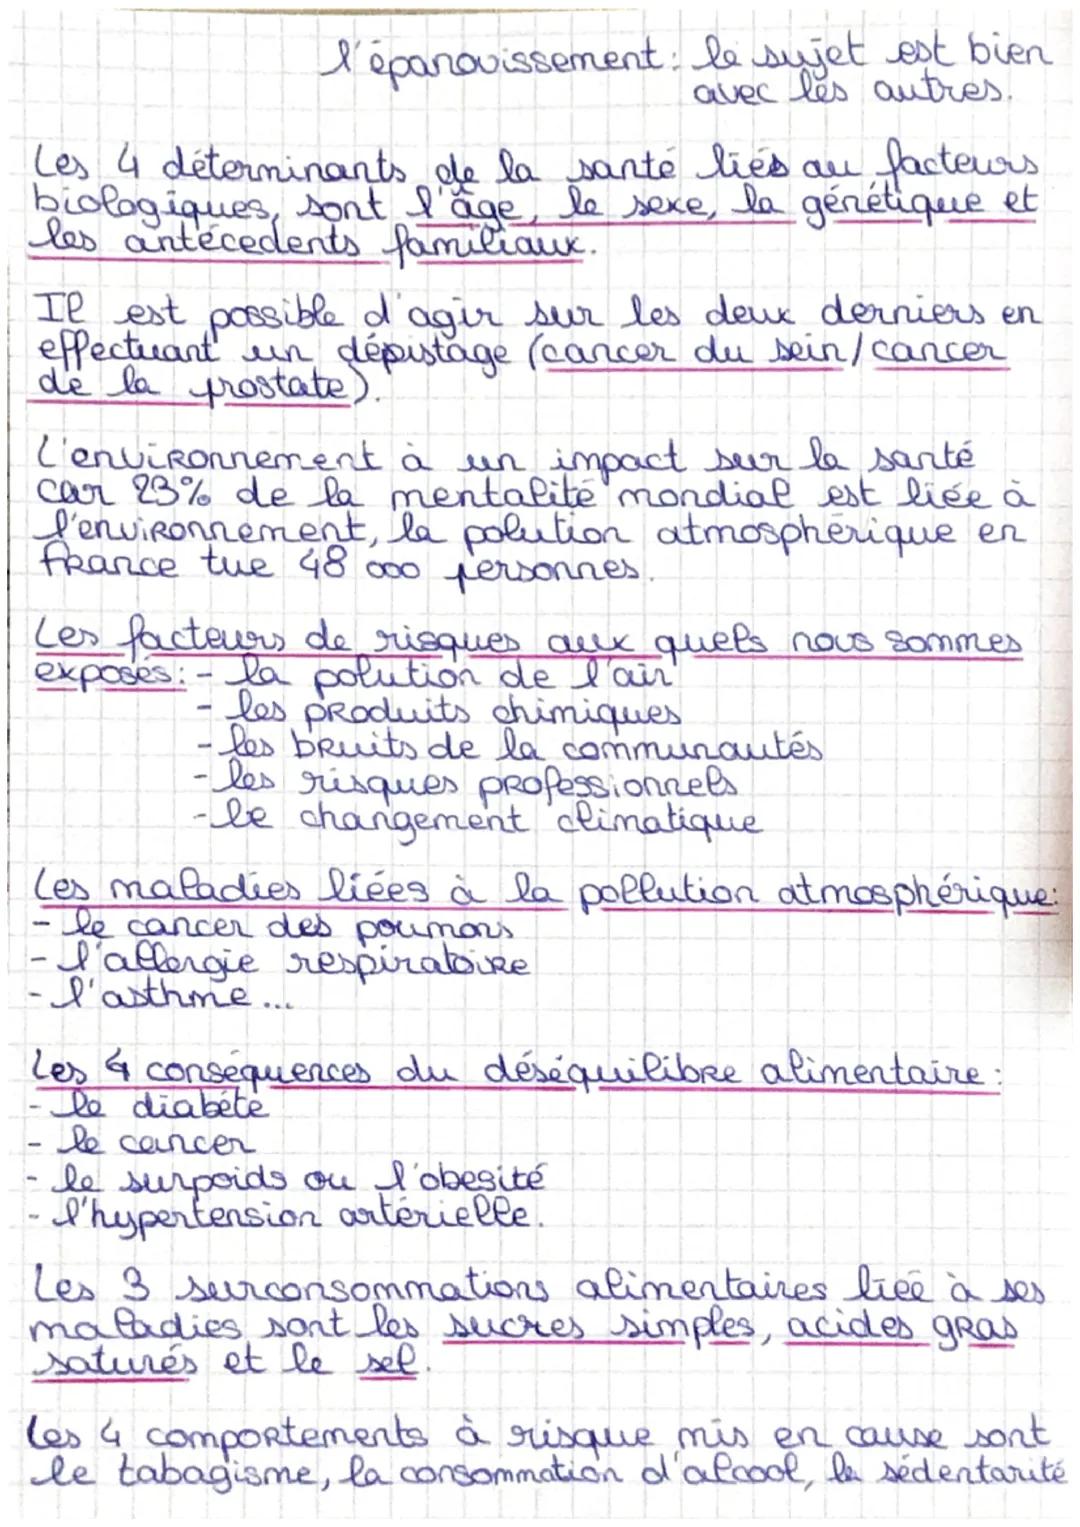 l'épanouissement : le sujet est bien
avec les autres.
Les 4 déterminants de la santé liés au facteurs
biologiques, sont l'âge, le sexe, la génétique et
les antécedents familiaux.
Il est possible d'agir sur les deux derniers en
effectuant un dépistage (cancer du sein / cancer
de la prostate).
L'environnement à un impact sur la santé
car 23% de la mentalité mondial est liée à
l'environnement, la polution atmosphérique en
France tue 48 000 personnes.
Les facteurs de risques aux quels nous sommes
exposés : - la polution de l'air
- les produits chimiques
- les bruits de la communautés
- les risques professionnels
- le changement climatique
Les maladies liées à la pollution atmosphérique :
- le cancer des poumons
- l'allergie respiratoire
- l'asthme ...
Les 4 conséquences du déséquilibre alimentaire :
- le diabéte
- le cancer
- le surpoids ou l'obesité
- l'hypertension artérielle.
Les 3 surconsommations alimentaires liée à ses
maladies sont les sucres simples, acides gras
saturés et le sel.
Les 4 comportements à risque mis en cause sont
le tabagisme, la consommation d'alcool, la sédentarité